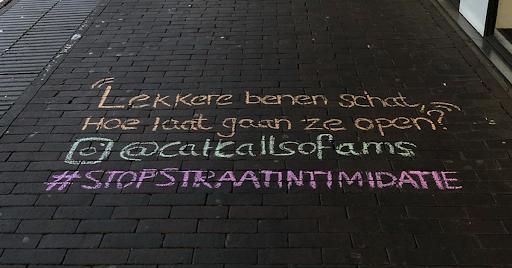 "Lekkere benen schat,
Hoe laat gaan ze open?"
@catcallsofams
#STOPSTRAATINTIMIDATIE